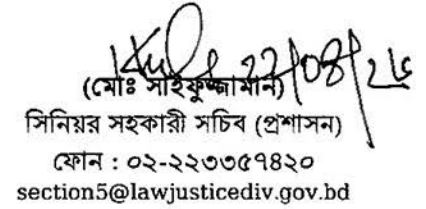 ২২/০৪/২৫
(মোঃ সাইফুজ্জামান)
সিনিয়র সহকারী সচিব (প্রশাসন)
ফোন : ০২-২২৩৩৫৭৪২০
section5@lawjusticediv.gov.bd